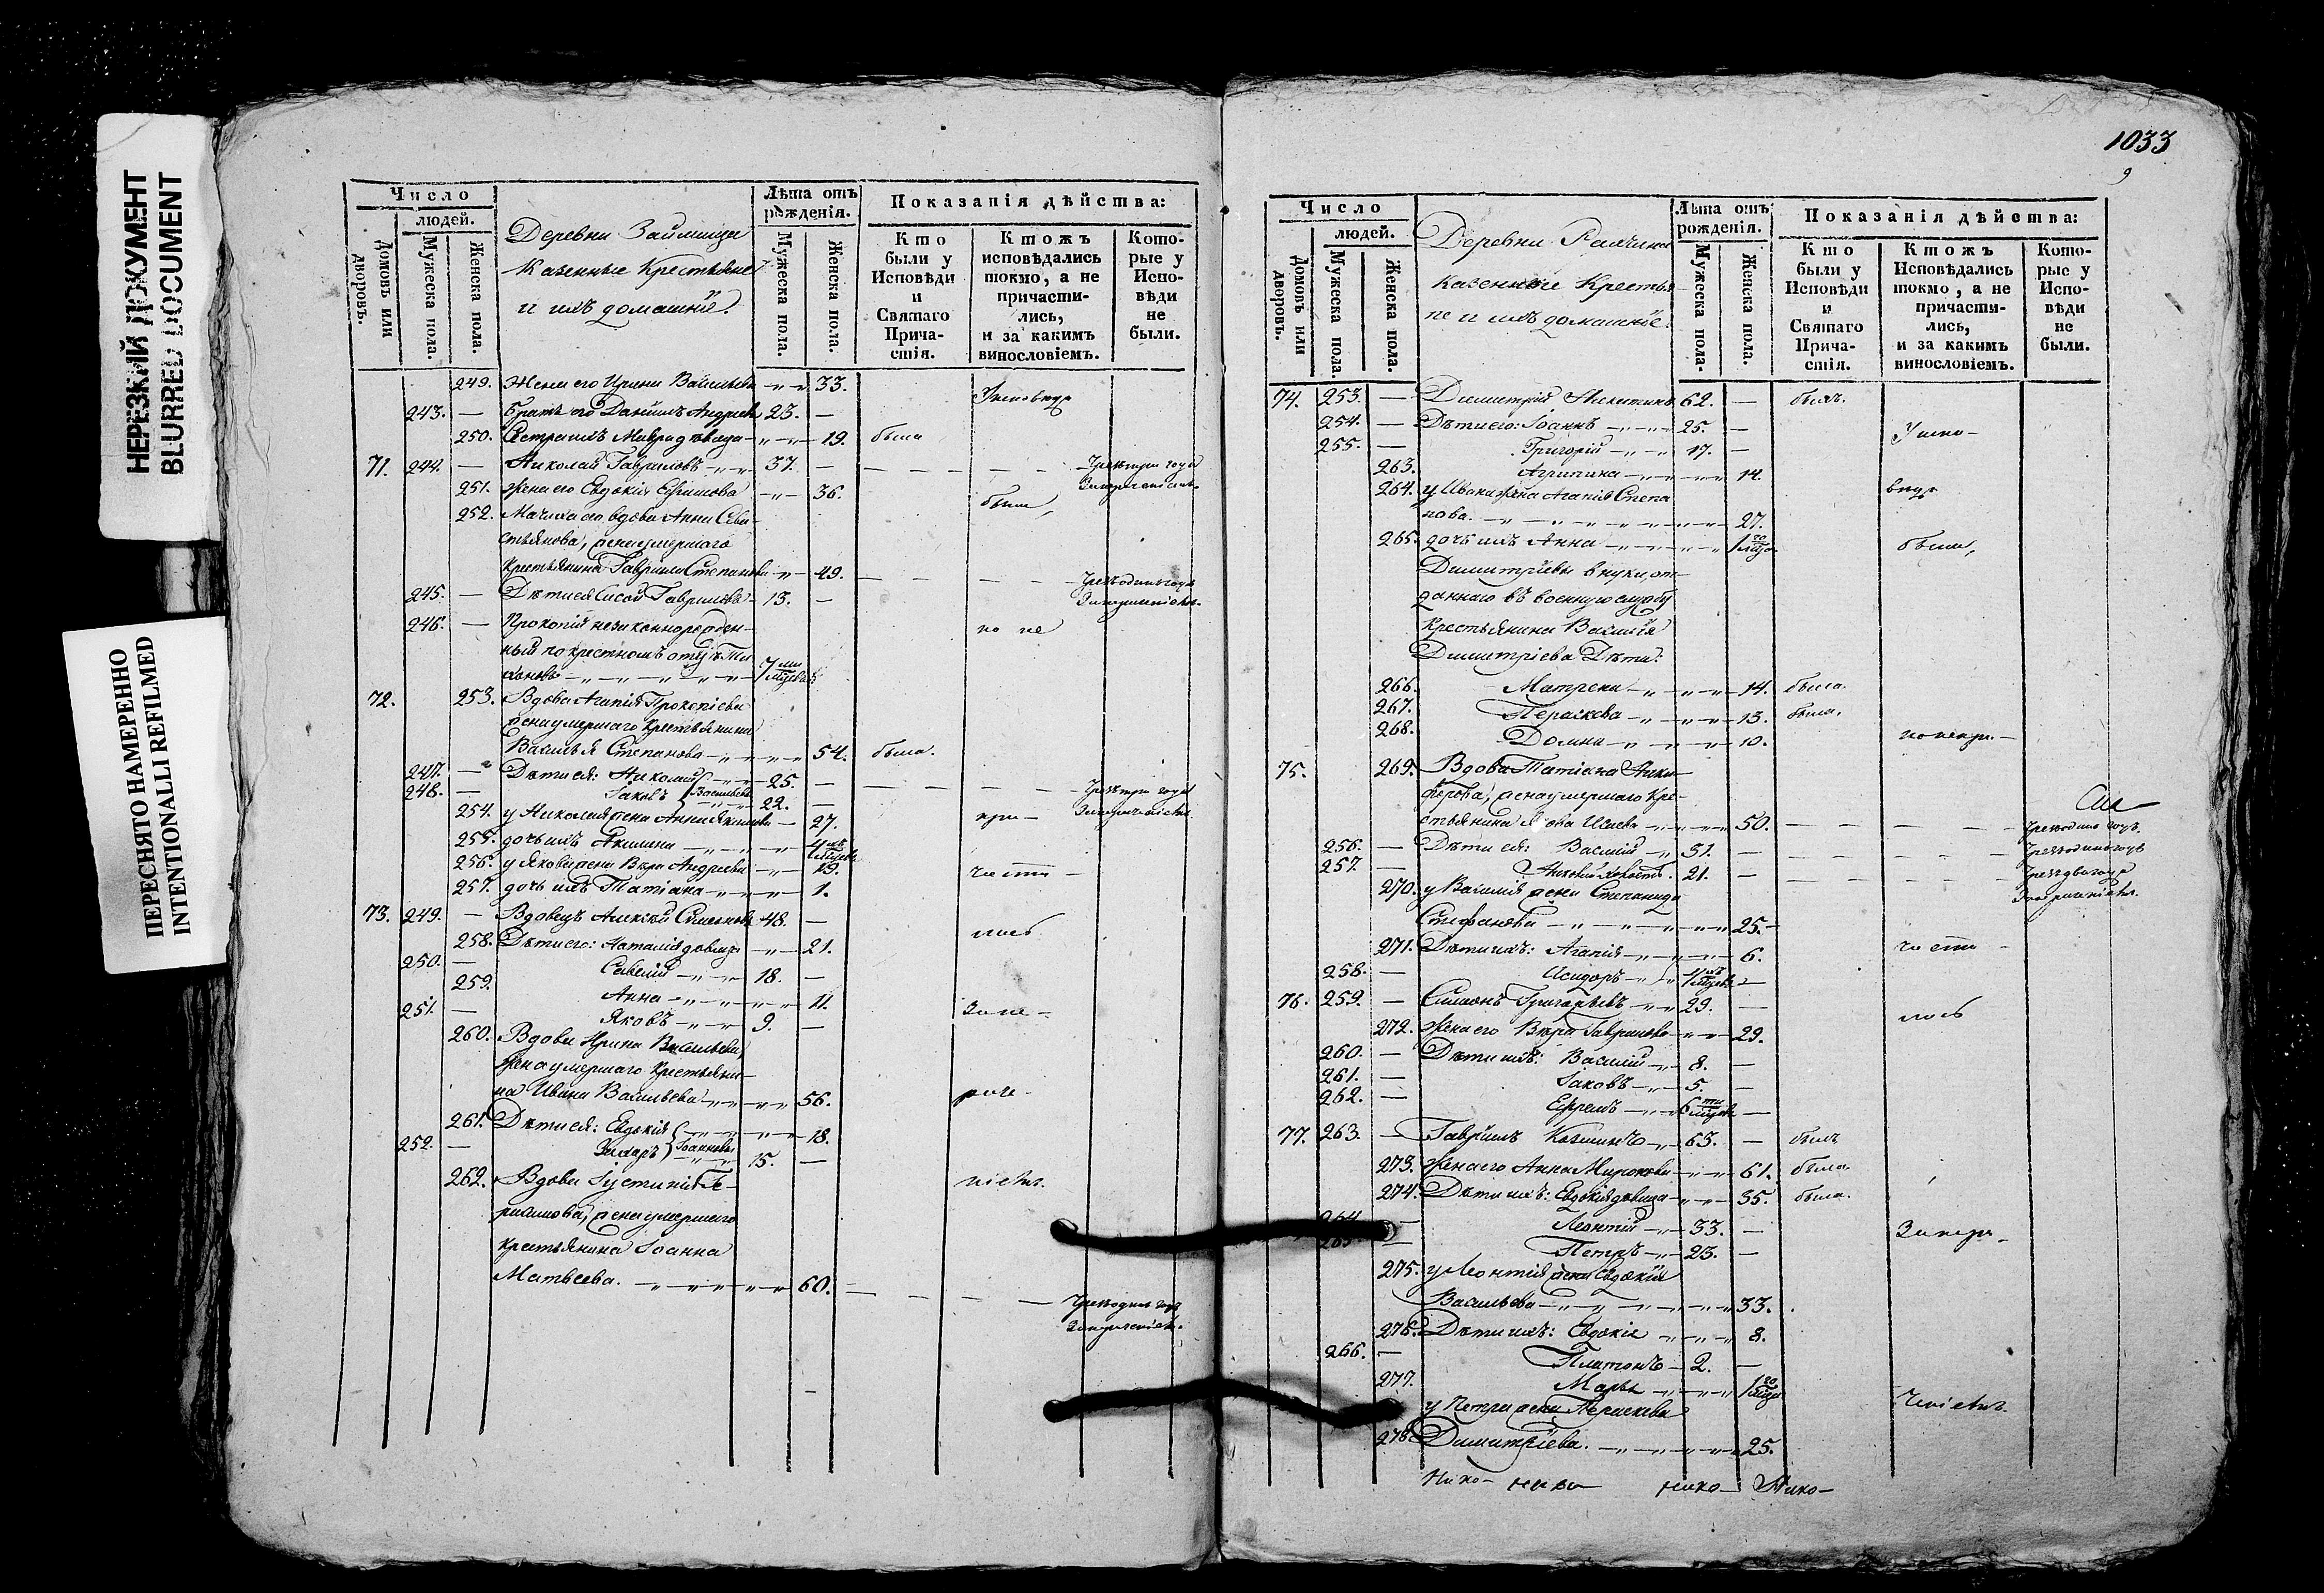 НЕРЕЗКИЙ ДОКУМЕНТ
BLURRED DOCUMENT
ПЕРЕСНЯТО НАМЕРЕННО
INTENTIONALLI REFILMED
Число
людей.
Домовъ или дворовъ.
Мужеска пола.
Женска пола.
Деревни Займища
Казенные Крестьяне
и ихъ домашніе.
Лѣта отъ рожденія.
Мужеска пола.
Женска пола.
Показанія дѣйства:
Кто были у Исповѣди и Святаго Прича- стія.
Ктожъ исповѣдались токмо, а не причасти- лись, и за какимъ винословіемъ.
Кото- рые у Испо- вѣди не были.
249. Жена его Ирина Васильева 33.
243. — Братъ его Даніилъ Андреевъ 23. —
250. Сестра ихъ Мавра дѣвица 19. была
71. 244. — Николай Гавриловъ 37. —
251. Жена его Евдокія Ефимова 36. были,
252. Мачиха его вдова Анна Сева-
стьянова, жена умершаго
Крестьянина Гаврила Степанова 49.
245. — Дѣти ея Сисой Гавриловъ 13. —
246. — Прокопій незаконнорожден- но не
ный по крестномъ отцѣ Ти-
хоновъ 7 ми мѣсяцовъ
72. 253. Вдова Агапія Прокопіева
жена умершаго Крестьянина
Василья Степанова 54. была.
247. — Дѣти ея: Николай 25. —
248. — Іаковъ Васильевы 22. —
254. у Николая жена Анна Якимова 27. при-
255. дочь ихъ Акилина 4
256. у Якова жена Вѣра Андреева 19. части-
257. дочь ихъ Татіана 1.
73. 249. — Вдовецъ Алексѣй Симеоновъ 48. —
258. Дѣти его: Наталія дѣвица 21. лись
250. — Савелій 18. —
259. Анна 11.
251. — Яковъ 9. — за не-
260. Вдова Ирина Васильева,
жена умершаго Крестьяни-
на Ивана Васильева 56. раче-
261. Дѣти ея: Евдокія 18.
252. — Захаръ Іоанновы 15. —
262. Вдова Іустинія Ге- ніемъ.
расимова, жена умершаго
Крестьянина Іоанна
Матвеева. 60.
1033
9
Число
людей.
Домовъ или дворовъ.
Мужеска пола.
Женска пола.
Деревни
Казенные Крестья-
не и ихъ домашніе.
Лѣта отъ рожденія.
Мужеска пола.
Женска пола.
Показанія дѣйства:
Кто были у Исповѣди и Святаго Прича- стія.
Ктожъ Исповѣдались токмо, а не причасти- лись, и за какимъ винословіемъ.
Кото- рые у Испо- вѣди не были.
74. 253. — Димитрій Никитинъ 62. — былъ.
254. — Дѣти его: Іоаннъ 25. —
255. — Григорій 17. —
263. Агрипина 14.
264. у Ивана жена Агапія Степа-
нова. 27.
265. дочь ихъ Анна 1 го были,
Димитріевы внуки, от-
даннаго въ военную службу
Крестьянина Василія
Димитріева Дѣти:
266. Матрена 14. была.
267. Параскева 13. была.
268. Домна 10. но не при-
75. 269. Вдова Татіана Ники-
ферова, жена умершаго Кре-
стьянина Якова Исаева 50.
256. — Дѣти ея: Василій 31. —
257. — 21. —
270. у Василія жена Степанида
Стефанова 25.
271. Дѣти ихъ: Агапія 6. части-
258. — Исидоръ 4 —
76. 259. — Симеонъ Григорьевъ 29. — лись
272. Жена его Вѣра Гаврилова 29.
260. — Дѣти ихъ: Василій 8. —
261. — Іаковъ 5. —
262. — Ефремъ 6 ти —
77. 263. — Гавріилъ Козминъ 63. — былъ
273. Жена его Анна Миронова 61. была.
274. Дѣти ихъ: Евдокія дѣвица 35. была.
264. — Леонтій 33. — за нера-
265. — Петръ 23. —
275. у Леонтія жена Евдокія
Васильева 33.
276. Дѣти ихъ: Евдокія 8.
266. — Платонъ 2. —
277. Марѳа 1
у Петра жена Параскева ченіемъ.
278. Димитріева. 25.